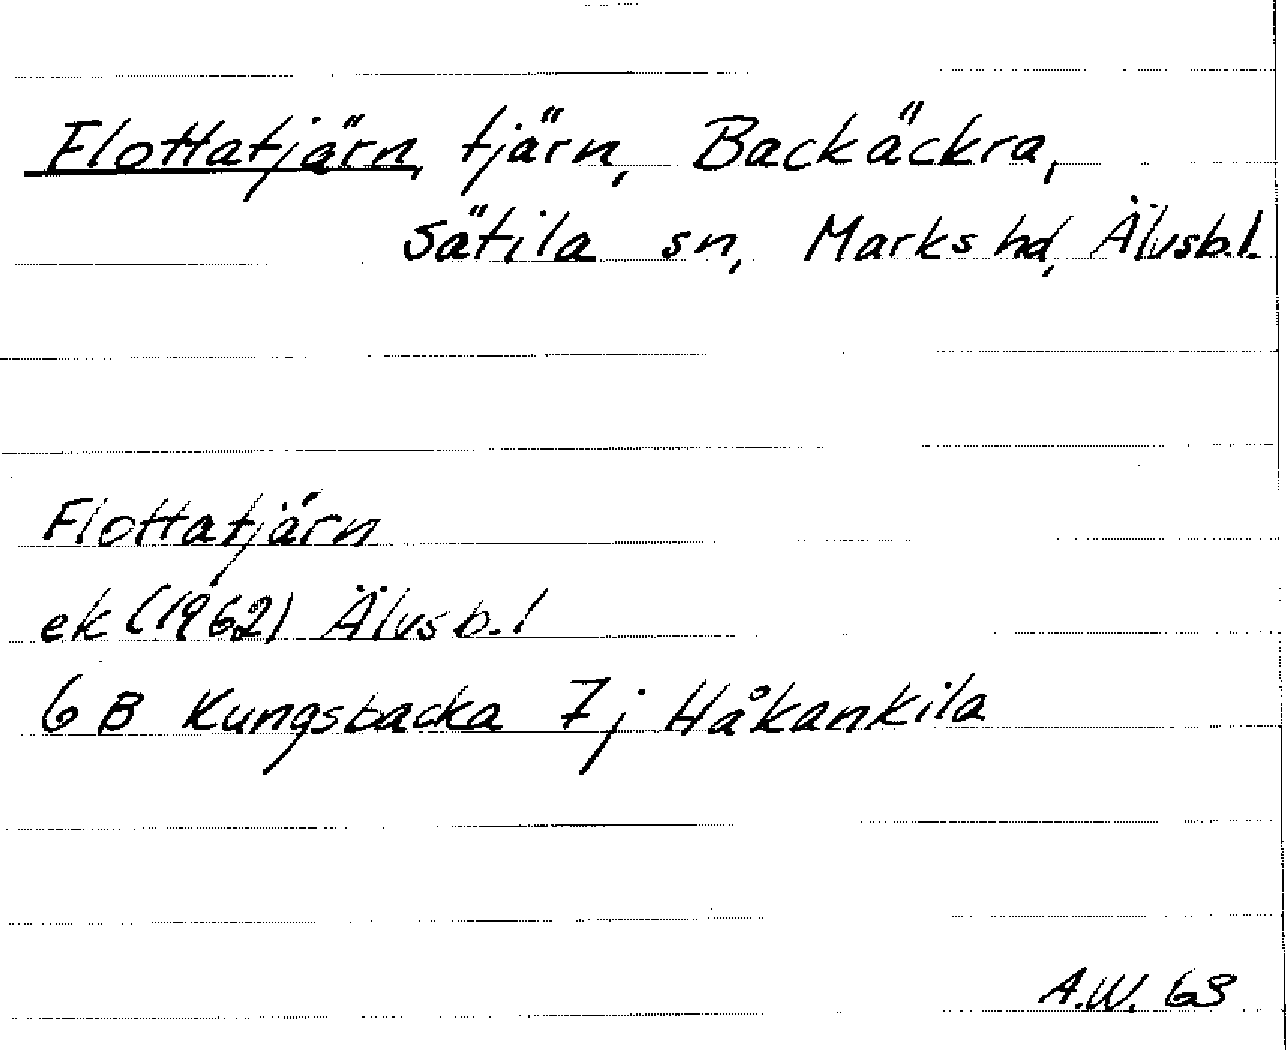 Flottatjärn, tjärn, Backäckra,
Sätila sn, Marks hd, Älvsb.l.
Flottatjärn
ek (1962) Älvsb.l
6 B Kungsbacka 7j Håkankila
A.W. 68